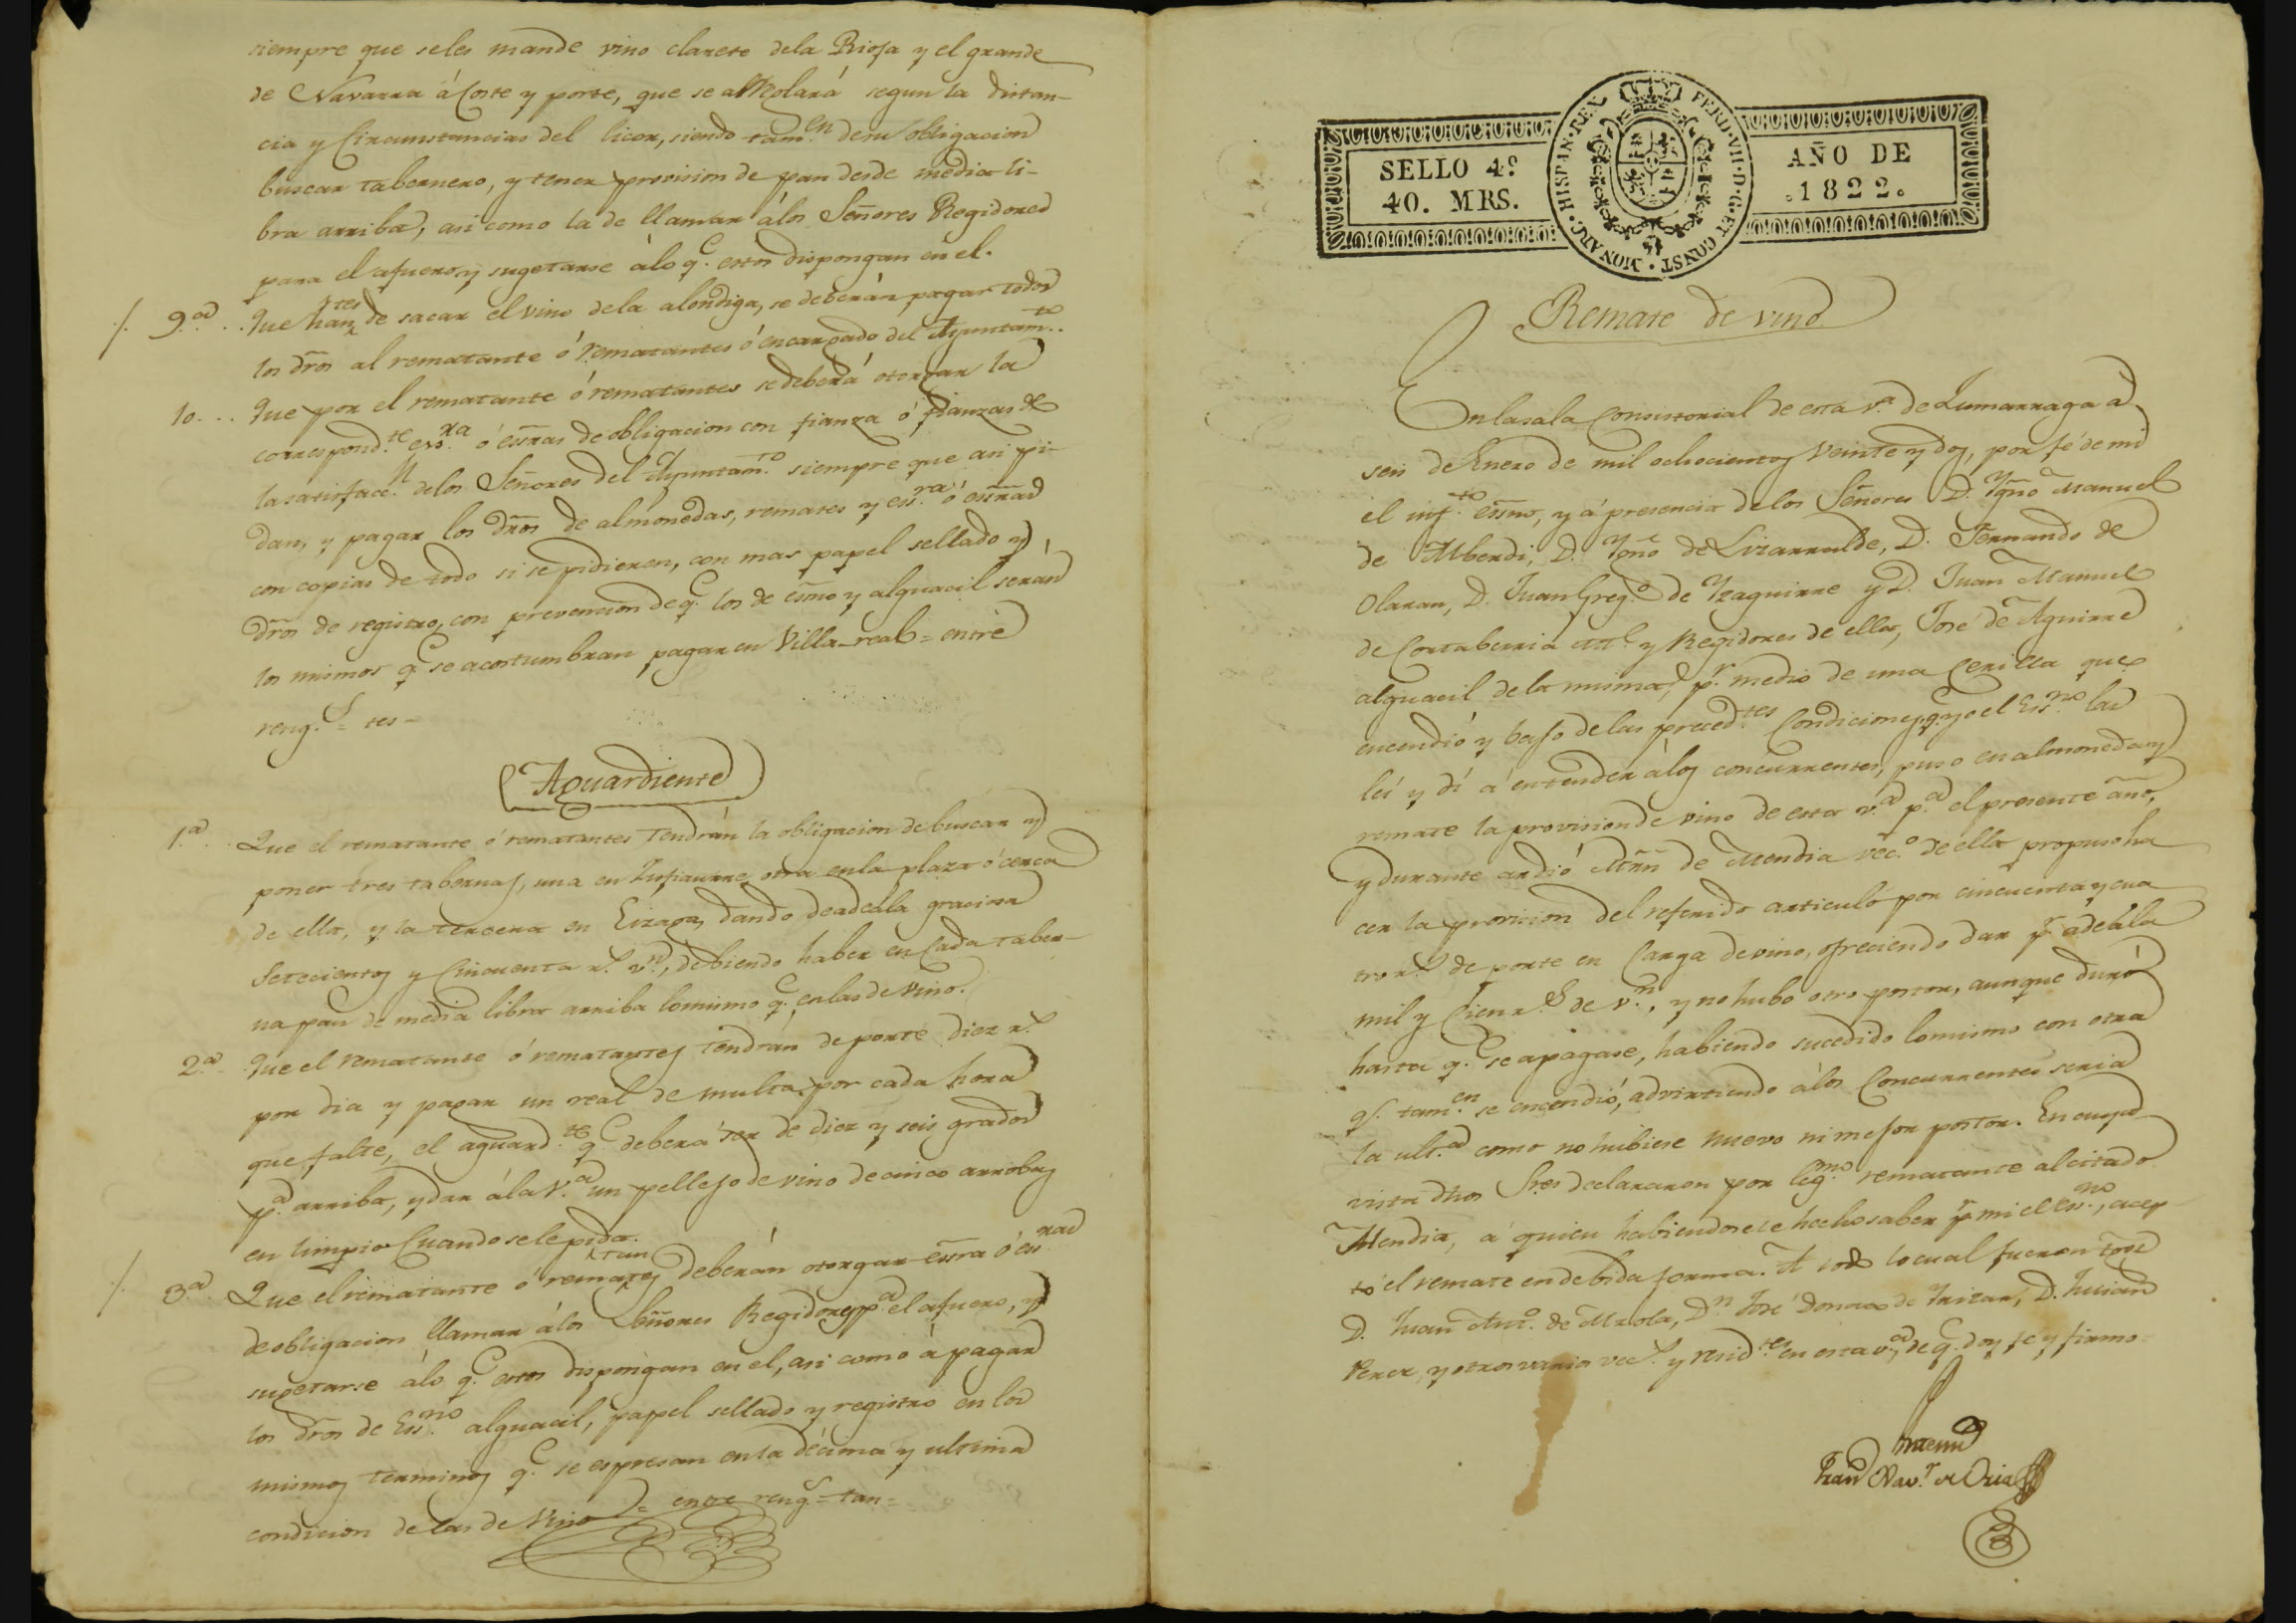 siempre que seles mande vino clarete dela Rioja y el grande
de Navarra á Coste y porte, que se aRolará segun la distan-
cia y Circunstancias del licor, siendo tam.en desu obligacion
buscar tabernero, y tener provision de pan desde media li-
bra arriba, asi como la de llamar álos Señores Regidores
para el afuero, y sugetarse álo q.e estos dispongan en el.
9.a .. Que antes de sacar el vino dela alondiga, se deberán pagar todos
los dr̃os al rematante ó rematantes ó encargado del Ayuntam.to
10... Que por el rematante ó rematantes se deberá otorgar la
correspond.te ess.ra ó essras de obligacion con fianza ó fianzas á
la satisfacc.n delos Señores del Ayuntam.to siempre que asi pi-
dan, y pagar los dr̃os de almonedas, remates y ess.ra ó essras
con copias de todo si se pidieren, con mas papel sellado y
dr̃os de registro, con prevencion de q.e los de essno y alguacil serán
los mismos q.e se acostumbran pagar en Villa-real = entre
reng.s = tes -
Aguardiente
1.a .. Que el rematante ó rematantes tendrán la obligacion de buscar y
poner tres tabernas, una en otra enla plaza ó cerca
de ella, y la tercera en Eizaga, dando de adeala graciosa
Setecientos y Cincuenta r.s v.n, debiendo haber en Cada taber-
na pan de media libra arriba lo mismo q.e enlas de vino.
2.a . Que el rematante ó rematantes tendrán de porte diez r.s
por dia y pagar un real de multa por cada hora
que falte, el aguard.te q.e deberá ser de diez y seis grados
p.a arriba, y dar ála V.a un pellejo de vino de cinco arrobas
en limpio Cuando sele pida.
3.a . Que el rematante ó rematantes deberán otorgar essra ó essras
de obligacion llamar álos Señores Regidores p.a el afuero, y
sugetarse álo q.e estos dispongan en el, asi como á pagar
los dr̃os de Ess.no alguacil, papel sellado y registro en los
mismos terminos q.e se espresan en la décima y ultima
condicion de las de Vino = entre reng.s = tan =
SELLO 4º
40. MRS.
HISPAN·REX FERD·VII·D·G·ET CONST·MONARC·
AÑO DE
1822.
Remate de vino
En la sala Consistorial de esta v.a de Zumarraga á
seis de Enero de mil ochocientos veinte y dos, por fé de mi
el inf.to essno, y á presencia de los Señores D. Ygño Manuel
de Alberdi, D. Ygño de Lizarralde, D. Fernando de
Olaran, D. Juan Greg.o de Yzaguirre y D. Juan Manuel
de Cortaberria Alc.e y Regidores de ella, José de Aguirre
alguacil dela misma, p.r medio de una Cerilla que
encendió y bajo delas preced.tes Condiciones, q.e yo el Ess.no las
leí y dí á entender álos concurrentes, puso en almoneda y
remate la provision de vino de esta v.a p.a el presente año,
y durante ardió Mrñ de Mendia vec.o de ella propuso ha
cer la provision del referido articulo por cincuenta y cua
tro r.s de porte en Carga de vino, ofreciendo dar p.r adeala
mil y Cien r.s de v.n, y no hubo otro postor, aunque duró
hasta q.e se apagase, habiendo sucedido lo mismo con otra
q.e tam.en se encendió, advirtiendo álos Concurrentes seria
la ult.a como no hubiese nuevo ni mejor postor. En cuya
vista dhos S.res declararon por leg.mo rematante al citado
Mendia, á quien habiendosele hecho saber p.r mi el ess.no, acep-
tó el remate en debida forma. A todo lo cual fueron tgos
D. Juan Ant.o de D.n José Donato de Yrizar, D. Julian
Perez, y otros varios vec.s y resid.tes en esta v.a, de q.e doy fe y firmo =
Ante mi
Fran.co Xav.r de Oria